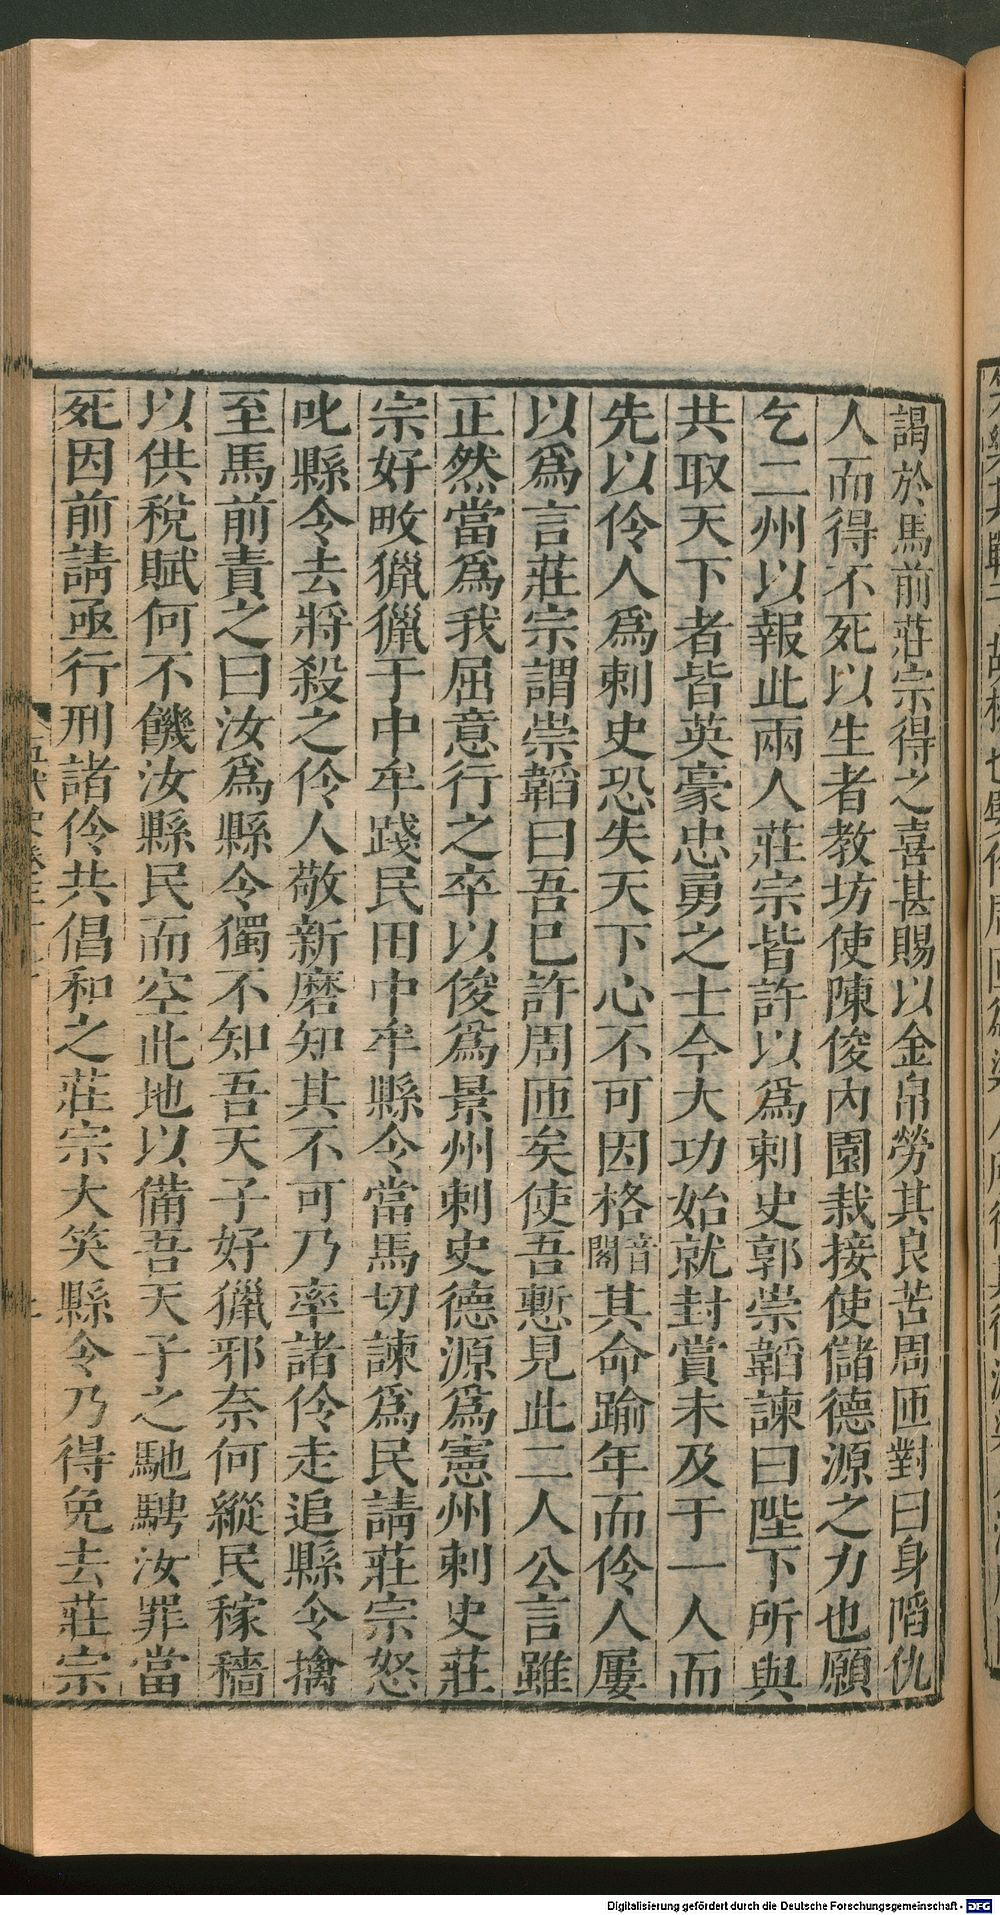 謁於馬前莊宗得之喜甚賜以金帛勞其良苦周匝對曰身陷仇
人而得不死以生者教坊使陳俊內園栽接使儲德源之力也願
乞二州以報此兩人莊宗皆許以爲刺史郭崇韜諫曰陛下所與
共取天下者皆英豪忠勇之士今大功始就封賞未及于一人而
先以伶人爲刺史恐失天下心不可因格音閣其命踰年而伶人屢
以爲言莊宗謂崇韜曰吾巳許周匝矣使吾慙見此二人公言雖
正然當爲我屈意行之卒以俊爲景州刺史德源爲憲州刺史莊
宗好畋獵獵于中牟踐民田中牟縣令當馬切諫爲民請莊宗怒
叱縣令去將殺之伶人敬新磨知其不可乃率諸伶走追縣令擒
至馬前責之曰汝爲縣令獨不知吾天子好獵邪奈何縱民稼穡
以供稅賦何不饑汝縣民而空此地以備吾天子之馳騁汝罪當
死因前請亟行刑諸伶共倡和之莊宗大笑縣令乃得免去莊宗
Digitalisierung gefördert durch die Deutsche Forschungsgemeinschaft - DFG